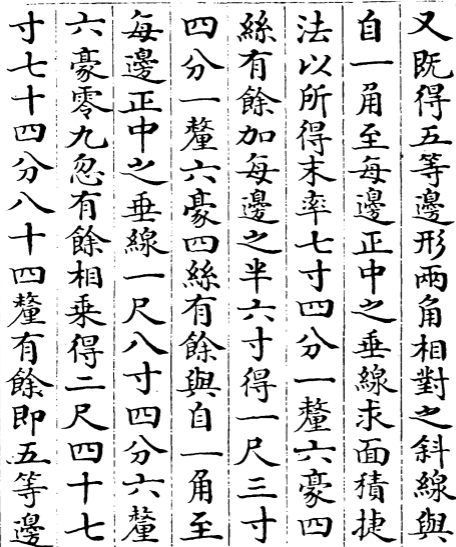 又既得五等邊形兩角相對之斜線與
自一角至每邊正中之垂線求面積捷
法以所得末率七寸四分一釐六豪四
絲有餘加每邊之半六寸得一尺三寸
四分一釐六豪四絲有餘與自一角至
每邊正中之垂線一尺八寸四分六釐
六豪零九忽有餘相乘得二尺四十七
寸七十四分八十四釐有餘即五等邊